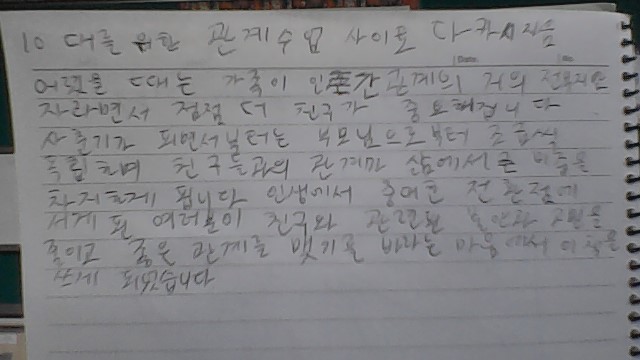 10 대를 위한 관계수업 사이토 다카시 지음
Date. No.
어렸을 때는 가족이 인간관계의 거의 전부지만
자라면서 점점 더 친구가 중요해집니다
사춘기가 되면서부터는 부모님으로부터 조금씩
독립하며 친구들과의 관계가 삶에서 큰 비중을
차지하게 됩니다 인생에서 중요한 전환점에
서게 된 여러분이 친구와 관련된 불안과 고민을
줄이고 좋은 관계를 맺기를 바라는 마음에서 이 책을
쓰게 되었습니다